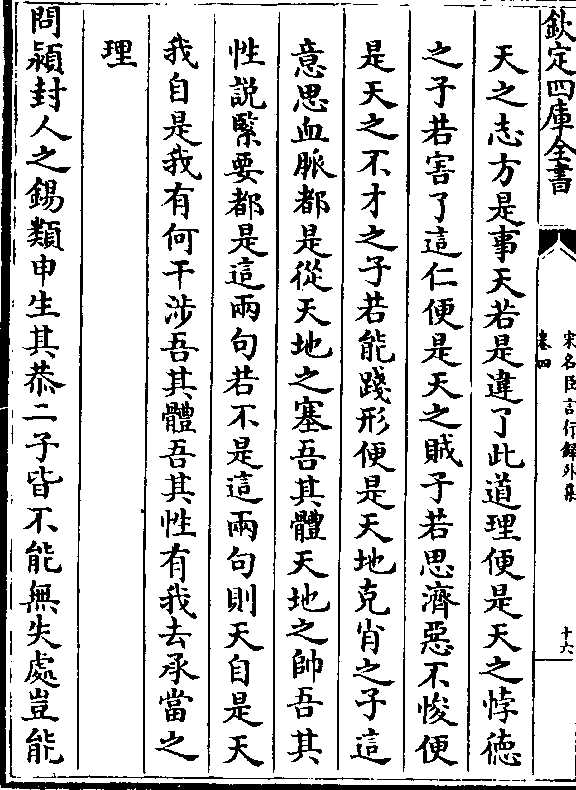 欽定四庫全書
宋名臣言行録外集
卷四
十六
天之志方是事天若是違了此道理便是天之悖徳
之子若害了這仁便是天之賊子若思濟惡不悛便
是天之不才之子若能踐形便是天地克肖之子這
意思血脈都是從天地之塞吾其體天地之帥吾其
性説緊要都是這兩句若不是這兩句則天自是天
我自是我有何干涉吾其體吾其性有我去承當之
理
問潁封人之錫類申生其恭二子皆不能無失處豈能